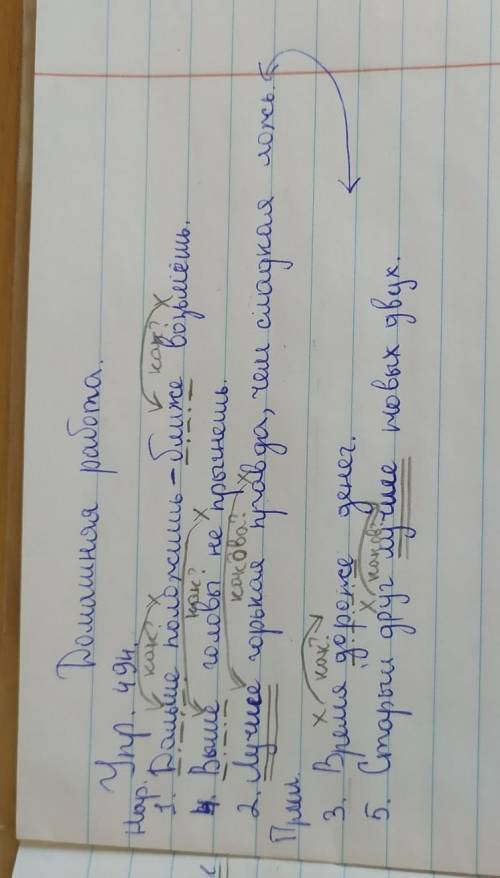 Домашняя работа.
Упр. 494.
Нар. как? х как? х
1. Дальше положишь – ближе возьмёшь.
как? х
4. Выше головы не прыгнешь.
какова? х
2. Лучше горькая правда, чем сладкая ложь.
Прил.
х как?
3. Время дороже денег.
х каков?
5. Старый друг лучше новых двух.